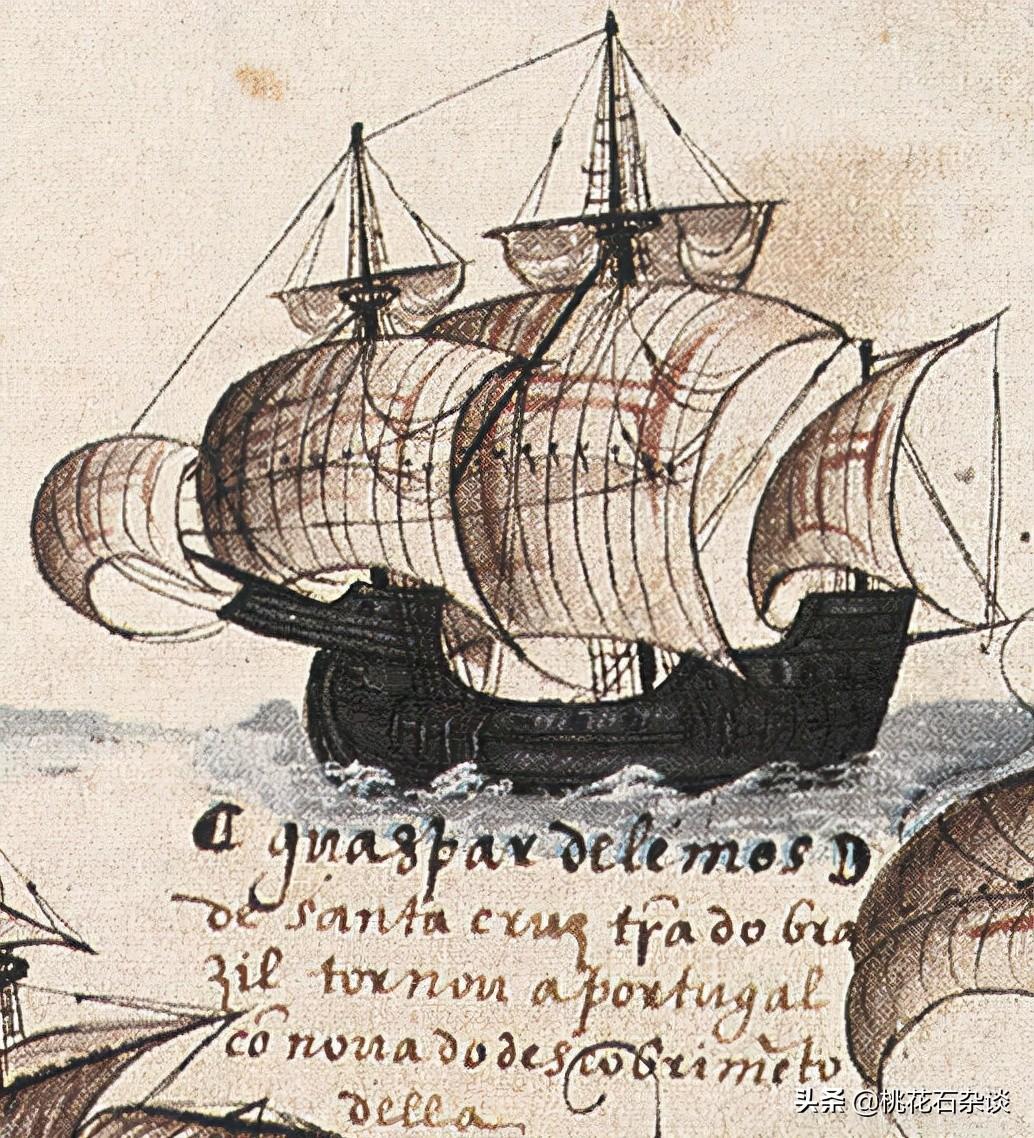 guaspar de lemos D
de santa cruz tr̃a do bra
zil tornou a portugal
cõ nova do descobrimẽto
della
头条 @桃花石杂谈